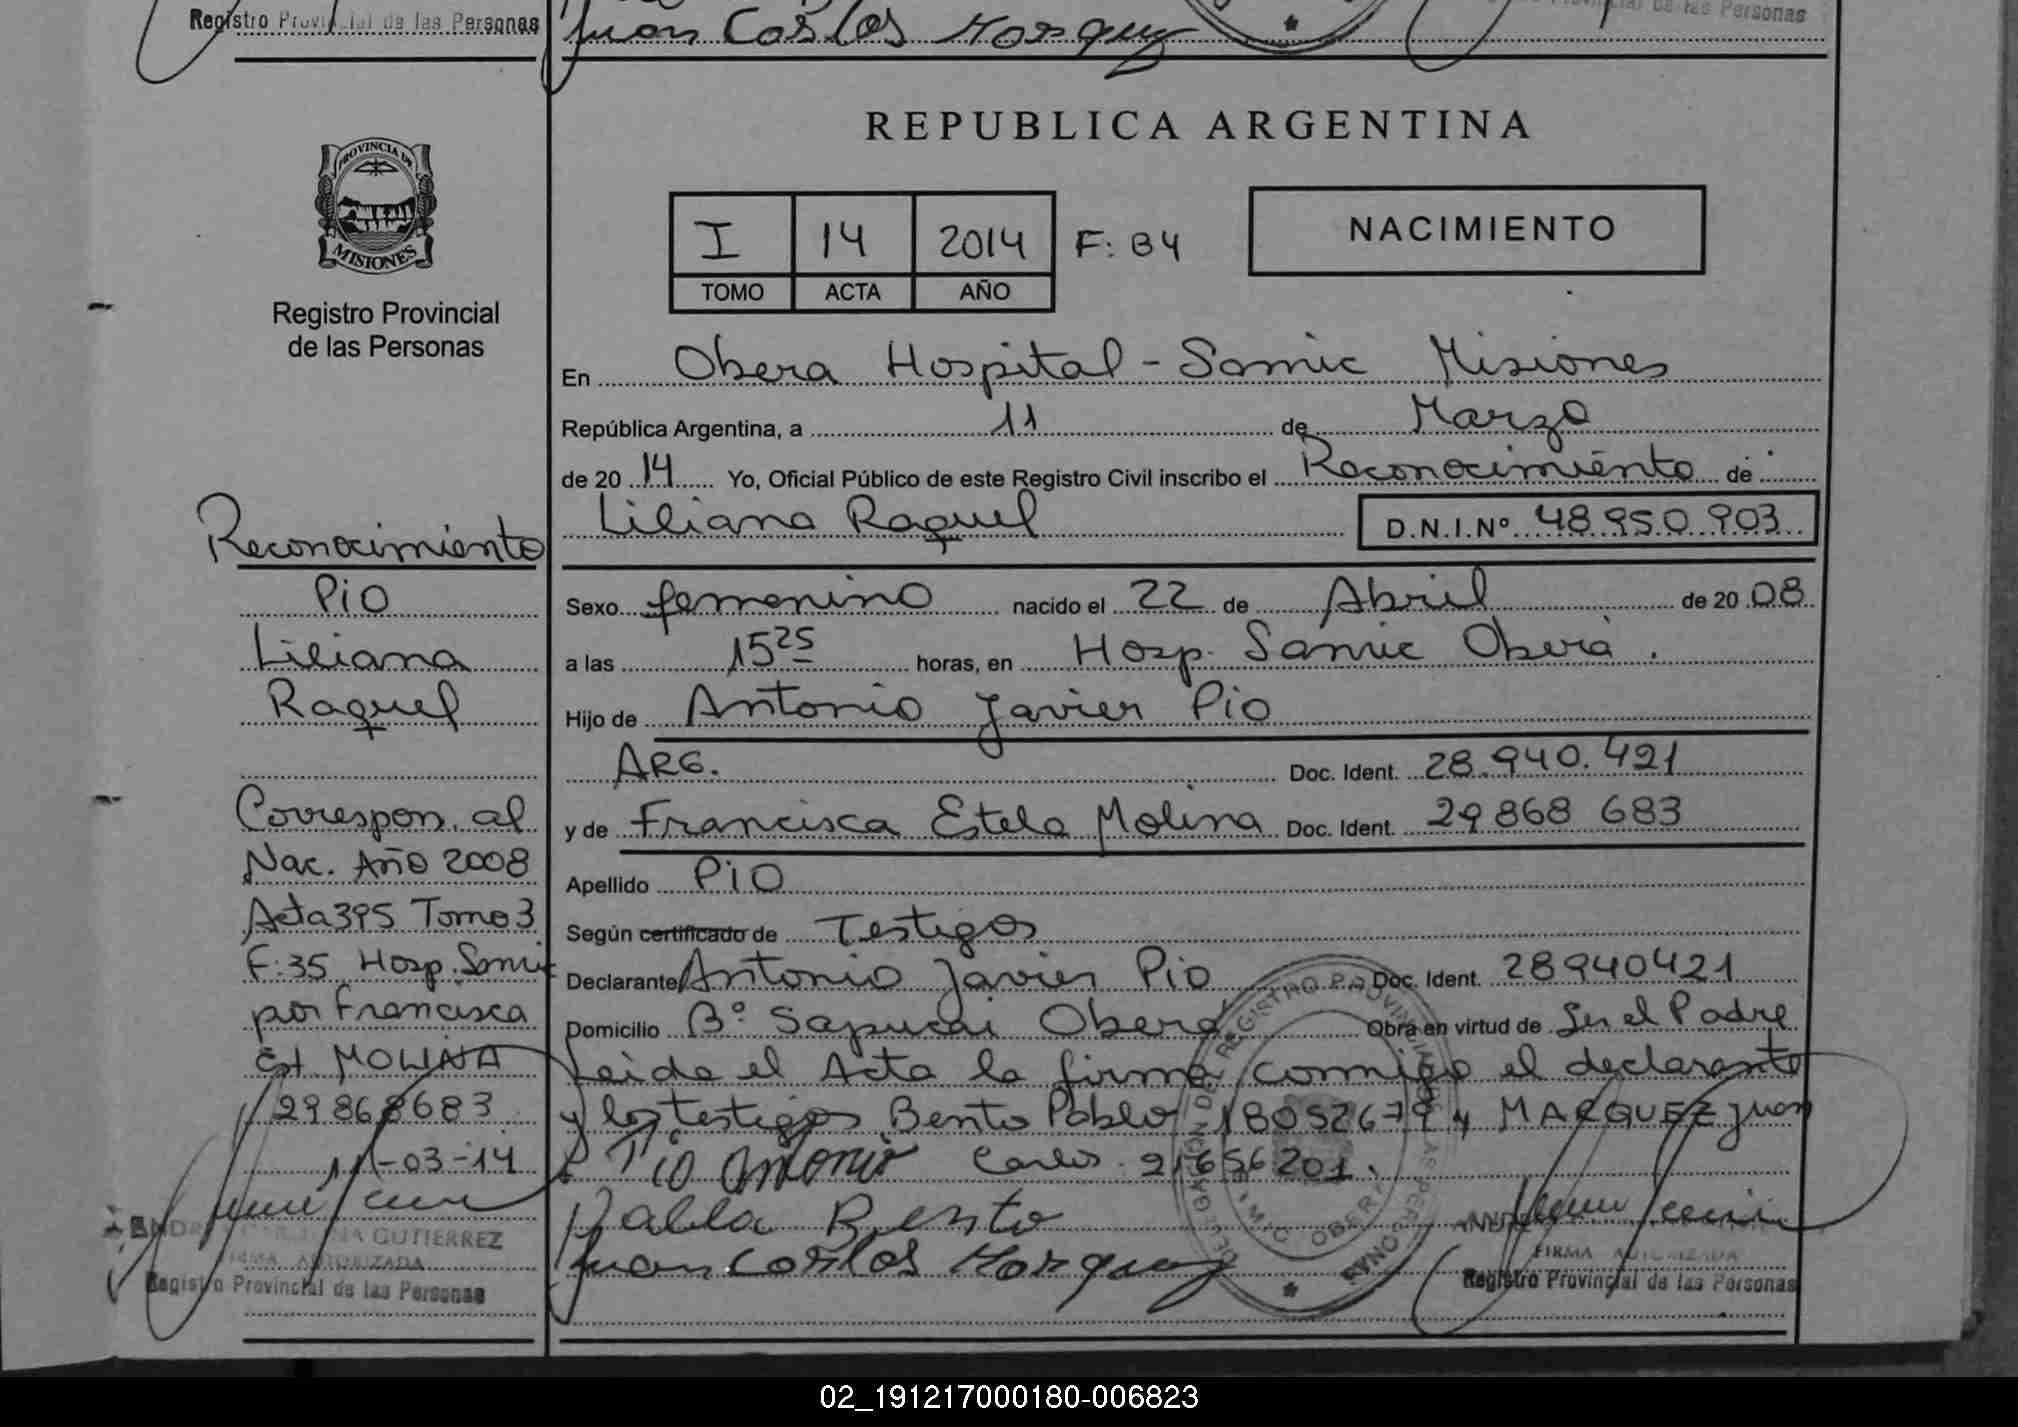 Registro Provincial de las Personas
Juan Carlos Marquez
de las Personas
PROVINCIA DE
MISIONES
Registro Provincial
de las Personas
Reconocimiento
PiO
Liliana
Raquel
Correspon. al
Nac. Año 2008
Acta 395 Tomo 3
F: 35 Hosp. Samic
por Francisca
Est MOLINA
29868683
11-03-14
GUTIERREZ
FIRMA AUTORIZADA
Registro Provincial de las Personas
REPUBLICA ARGENTINA
I 14 2014 F: 84
TOMO ACTA AÑO
NACIMIENTO
En Obera Hospital - Samic Misiones
República Argentina, a 11 de Marzo
de 20 14 Yo, Oficial Público de este Registro Civil inscribo el Reconocimiento de
Liliana Raquel D.N.I.Nº 48.950.903
Sexo femenino nacido el 22 de Abril de 20 08
a las 15 25 horas, en Hosp. Samic Oberá.
Hijo de Antonio Javier Pio
ARG. Doc. Ident. 28.940.421
y de Francisca Estela Molina Doc. Ident. 29868 683
Apellido PiO
Según certificado de Testigos
Declarante Antonio Javier Pio Doc. Ident. 28940421
Domicilio Bº Sapucai Oberá Obra en virtud de Ser el Padre
Leida el Acta la firma conmigo el declarante
y los testigos Bento Pablo 18052679 y MARQUEZ Juan
Pio Antonio Carlos 21656201.
Pablo Bento
Juan Carlos Marquez
FIRMA AUTORIZADA
Registro Provincial de las Personas
02_191217000180-006823